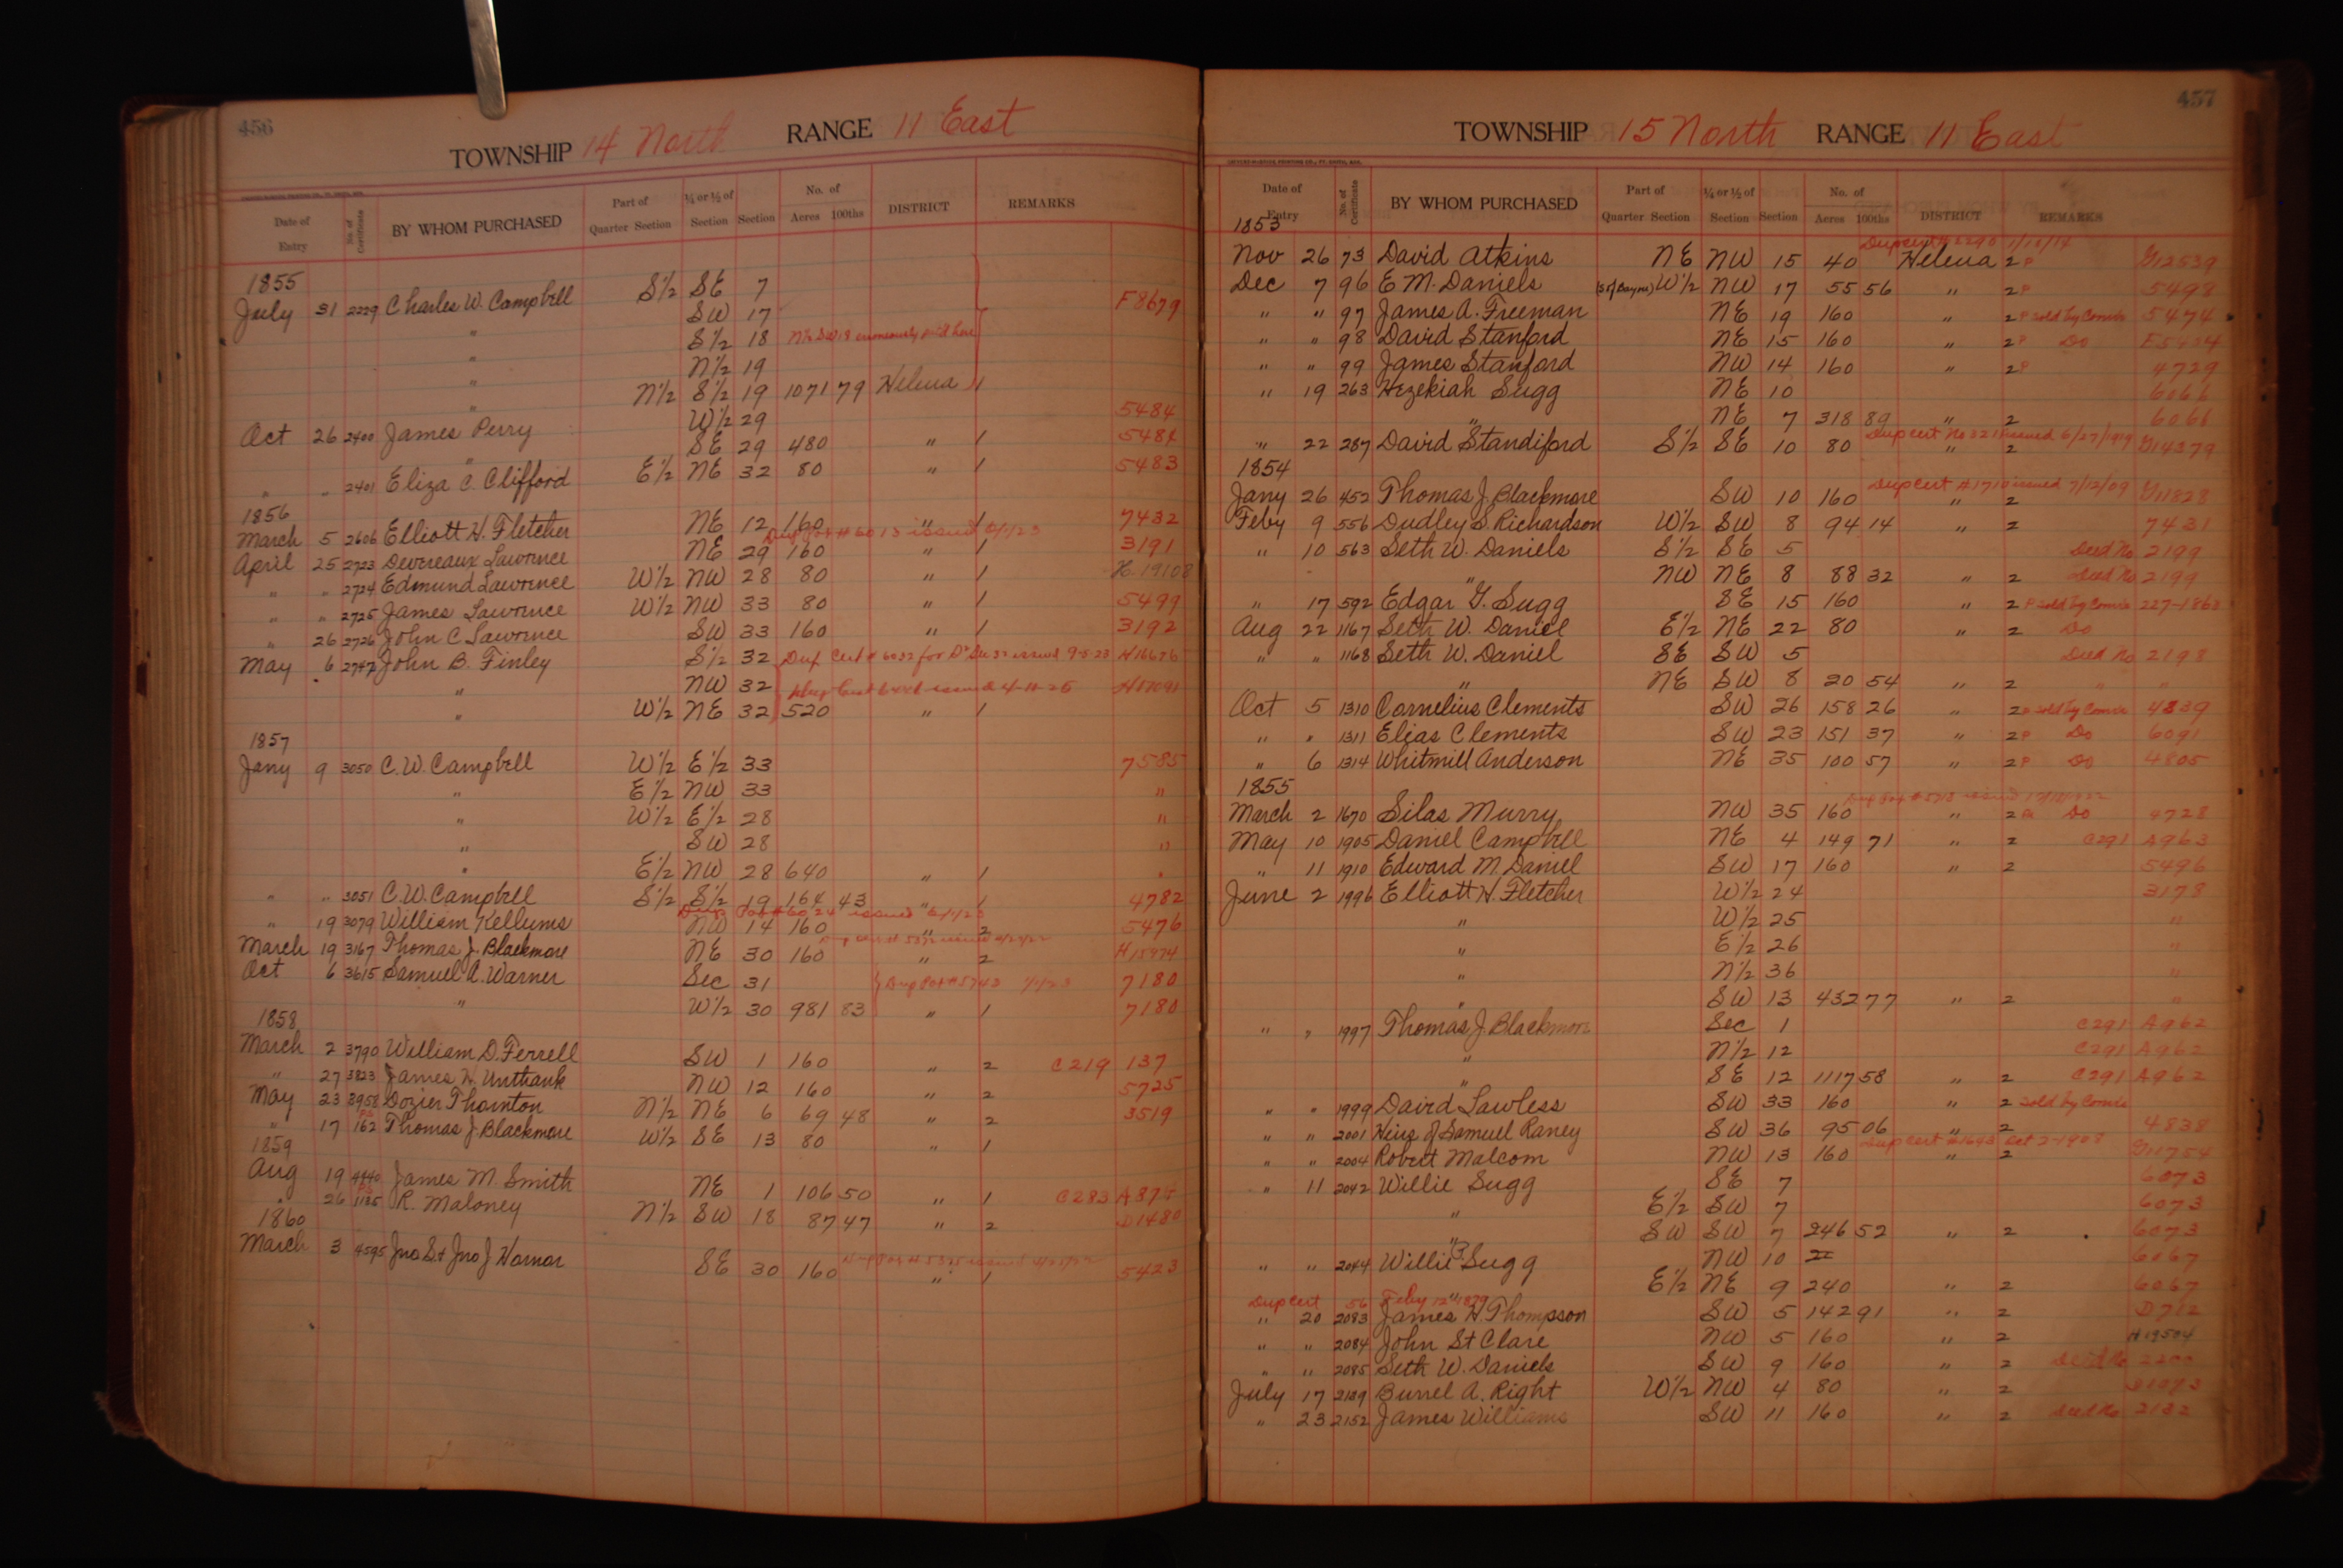 456
TOWNSHIP 14 North RANGE 11 East
Date of Entry No. of Certificate BY WHOM PURCHASED Part of Quarter Section ¼ or ½ of Section Section No. of Acres 100ths DISTRICT REMARKS
1855
July 31 2229 Charles W. Campbell S½ SE 7
" SW 17 F8679
" S½ 18 N½ SW 18 erroneously pat'd here
" N½ 19
" N½ S½ 19 1071 79 Helena 1
Oct 26 2400 James Perry W½ 29 5484
" SE 29 480 " 1 5484
" " 2401 Eliza C. Clifford E½ NE 32 80 " 1 5483
1856
March 5 2606 Elliott H. Fletcher NE 12 160 " 1 7432
Dup Pat # 6013 issued 6/1/23
April 25 2723 Devereaux Lawrence NE 29 160 " 1 3191
" " 2724 Edmund Lawrence W½ NW 28 80 " 1 H.19108
" " 2725 James Lawrence W½ NW 33 80 " 1 5499
" 26 2726 John C Lawrence SW 33 160 " 1 3192
May 6 2747 John B. Finley S½ 32 Dup Cert # 6032 for issued 9-5-23 H16676
" NW 32 Dup Cert issued 4-11-25
" W½ NE 32 520 " 1
1857
Jany 9 3050 C. W. Campbell W½ E½ 33 7585
" E½ NW 33 "
" W½ E½ 28 "
" SW 28 "
" E½ NW 28 640 " 1 "
" " 3051 C. W. Campbell S½ S½ 19 164 43 " 1 4782
Dup Pat # 6024 issued 6/1/23
" 19 3079 William Kellums NW 14 160 " 2 5476
March 19 3167 Thomas J. Blackmore NE 30 160 " 2 H15974
Oct 6 3615 Samuel A. Warner Sec 31 Dup Pat # 5743 1/1/23 7180
" W½ 30 981 83 " 1 7180
1858
March 2 3790 William D. Ferrell SW 1 160 " 2 C219 137
" 27 3823 James H. Unthank NW 12 160 " 2 5725
May 23 3958 Dozier Thornton N½ NE 6 69 48 " 2 3519
" 17 162 Thomas J. Blackmore W½ SE 13 80 " 1
1859
Aug 19 4440 James M. Smith NE 1 106 50 " 1 C283 A874
" 26 1185 R. Maloney N½ SW 18 87 47 " 2 D1480
1860
March 3 4595 Jno S. & Jno J Hornor SE 30 160 " 1 5423
457
TOWNSHIP 15 North RANGE 11 East
Date of Entry No. of Certificate BY WHOM PURCHASED Part of Quarter Section ¼ or ½ of Section Section No. of Acres 100ths DISTRICT REMARKS
1853
Nov 26 73 David Atkins NE NW 15 40 Helena 2 P G12539
Dec 7 96 E M. Daniels (S of Bayou) W½ NW 17 55 56 " 2 P 5498
" " 97 James A. Freeman NE 19 160 " 2 P sold by Comr 5474
" " 98 David Stanford NE 15 160 " 2 P Do E5434
" " 99 James Stanford NW 14 160 " 2 P 4729
" 19 263 Hezekiah Sugg NE 10 6066
" NE 7 318 89 " 2 6066
Dup cert No 321 issued 6/27/1909
" 22 287 David Standiford S½ SE 10 80 " 2 G14379
1854
Dup Cert # 1710 issued 7/12/09
Jany 26 452 Thomas J. Blackmore SW 10 160 " 2 G11828
Feby 9 556 Dudley S. Richardson W½ SW 8 94 14 " 2 7431
" 10 563 Seth W. Daniels S½ SE 5 Deed No 2199
" NW NE 8 88 32 " 2 Deed No 2199
" 17 592 Edgar G. Sugg SE 15 160 " 2 P sold by Comr 227-1860
Aug 22 1167 Seth W. Daniel E½ NE 22 80 " 2 Do
" " 1168 Seth W. Daniel SE SW 5 Deed No 2198
" NE SW 8 20 54 " 2 " "
Oct 5 1310 Cornelius Clements SW 26 158 26 " 2 P sold by Comr 4839
" " 1311 Elias Clements SW 23 151 37 " 2 P Do 6091
" 6 1314 Whitmill Anderson NE 35 100 57 " 2 P Do 4805
1855
March 2 1670 Silas Murry NW 35 160 " 2 Do 4728
May 10 1905 Daniel Campbell NE 4 149 71 " 2 C291 A963
" 11 1910 Edward M. Daniel SW 17 160 " 2 5496
June 2 1996 Elliott H. Fletcher W½ 24 3178
" W½ 25 "
" E½ 26 "
" N½ 36 "
" SW 13 4327 7 " 2 "
" " 1997 Thomas J Blackmore Sec 1 C291 A962
" N½ 12 C291 A962
" SE 12 1117 58 " 2 C291 A962
" " 1999 David Lawless SW 33 160 " 2 sold by Comr
" " 2001 Heirs of Samuel Raney SW 36 95 06 " 2 4838
Dup cert #1643 Oct 2-1908
" " 2004 Robert Malcom NW 13 160 " 2 G11754
" 11 2042 Willie Sugg SE 7 6073
" E½ SW 7 6073
" SW SW 7 246 52 " 2 6073
" " 2044 Willie P. Sugg NW 10 6067
" E½ NE 9 240 " 2 6067
Dup cert 56 Feby 12" 1879
" 20 2083 James H. Thompson SW 5 142 91 " 2 D712
" " 2084 John St Clare NW 5 160 " 2 H19504
" " 2085 Seth W. Daniels SW 9 160 " 2 Deed No 2200
July 17 2139 Burrel A. Right W½ NW 4 80 " 2
" 23 2152 James Williams SW 11 160 " 2 Deed No 2132